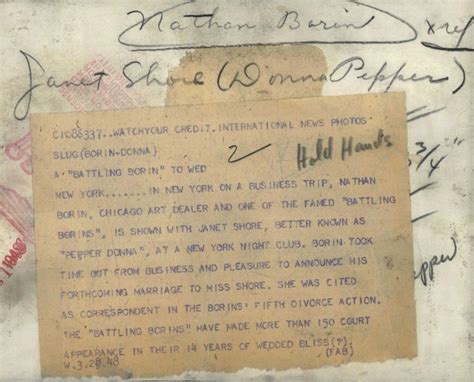 Nathan Borin xref
Janet Shore (Donna Pepper)
C1086337..WATCHYOUR CREDIT.INTERNATIONAL NEWS PHOTOS
SLUG(BORIN-DONNA)
2 Hold Hands
A "BATTLING BORIN" TO WED
NEW YORK.......IN NEW YORK ON A BUSINESS TRIP, NATHAN
BORIN, CHICAGO ART DEALER AND ONE OF THE FAMED "BATTLING
BORINS", IS SHOWN WITH JANET SHORE, BETTER KNOWN AS
"PEPPER DONNA", AT A NEW YORK NIGHT CLUB. BORIN TOOK
TIME OUT FROM BUSINESS AND PLEASURE TO ANNOUNCE HIS
FORTHCOMING MARRIAGE TO MISS SHORE. SHE WAS CITED
AS CORRESPONDENT IN THE BORINS' FIFTH DIVORCE ACTION.
THE "BATTLING BORINS" HAVE MADE MORE THAN 150 COURT
APPEARANCE IN THEIR 14 YEARS OF WEDDED BLISS(?).
W.3.28.48 (FAB)
3/4"